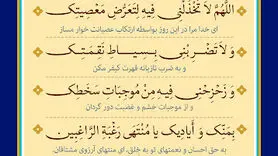 اللَّهُمَّ لَا تَخْذُلْنِي فِيهِ لِتَعَرُّضِ مَعْصِيَتِكَ
ای خدا مرا در این روز بواسطه ارتکاب عصیانت خوار مساز
وَ لَا تَضْرِبْنِي بِسِيَاطِ نَقِمَتِكَ
و به ضرب تازیانه قهرت کیفر مکن
وَ زَحْزِحْنِي فِيهِ مِنْ مُوجِبَاتِ سَخَطِكَ
و از موجبات خشم و غضبت دور گردان
بِمَنِّكَ وَ أَيَادِيكَ يَا مُنْتَهَى رَغْبَةِ الرَّاغِبِينَ
به حق احسان و نعمتهای تو به خلق، ای منتهای آرزوی مشتاقان.